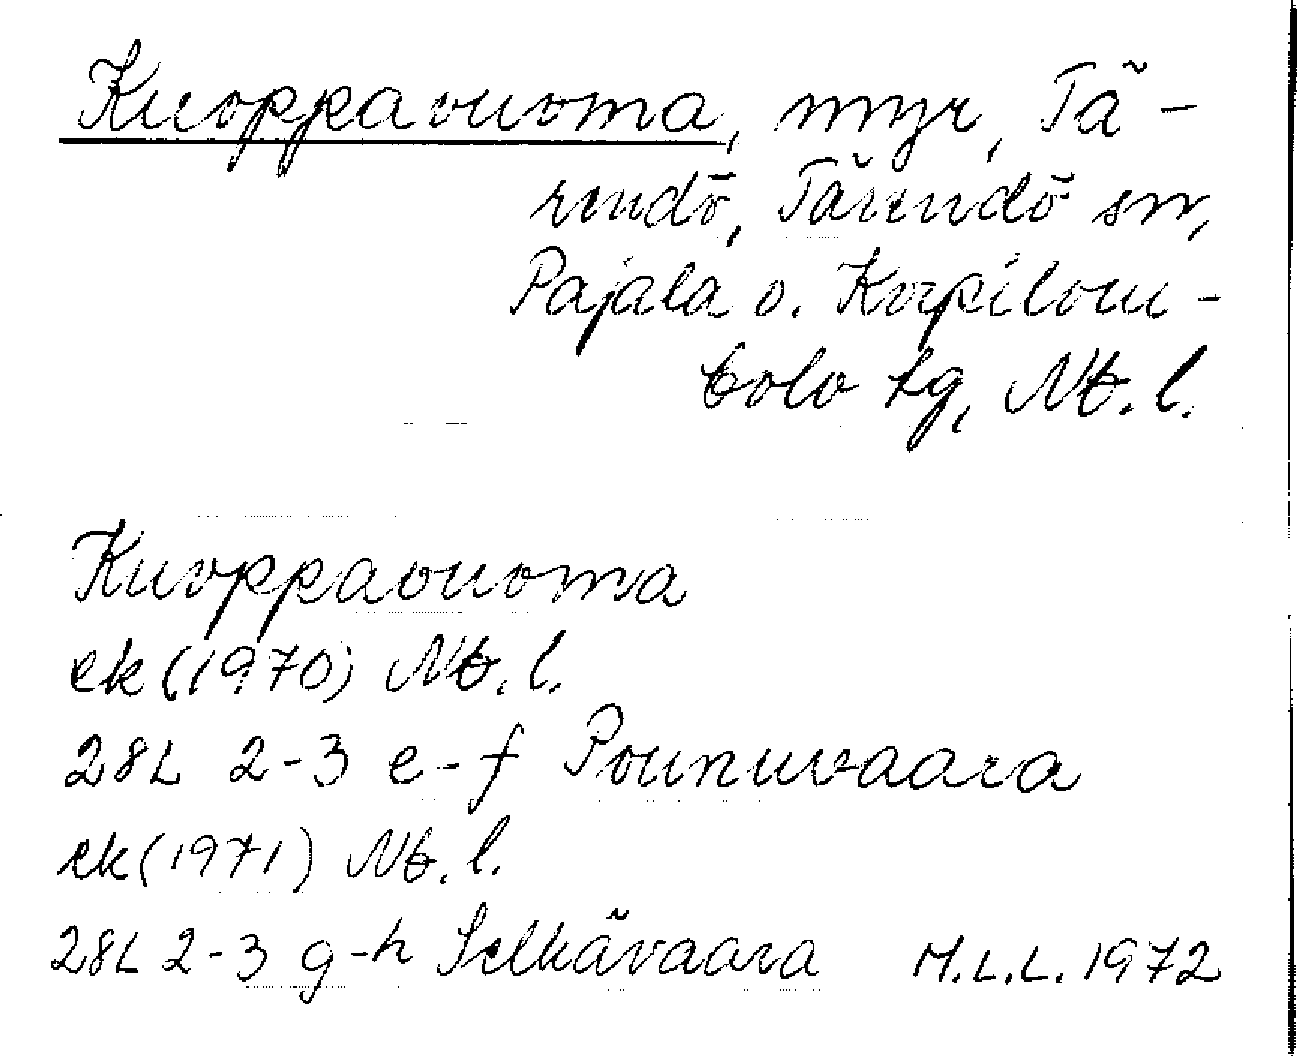 Kuoppavuoma, myr, Tä-
rendö, Tärendö sn,
Pajala o. Korpilom-
bolo tg, Nb. l.
Kuoppavuoma
ek (1970) Nb. l.
28L 2-3 e-f Pounuvaara
ek (1971) Nb. l.
28L 2-3 g-h Selkävaara M.L.L. 1972